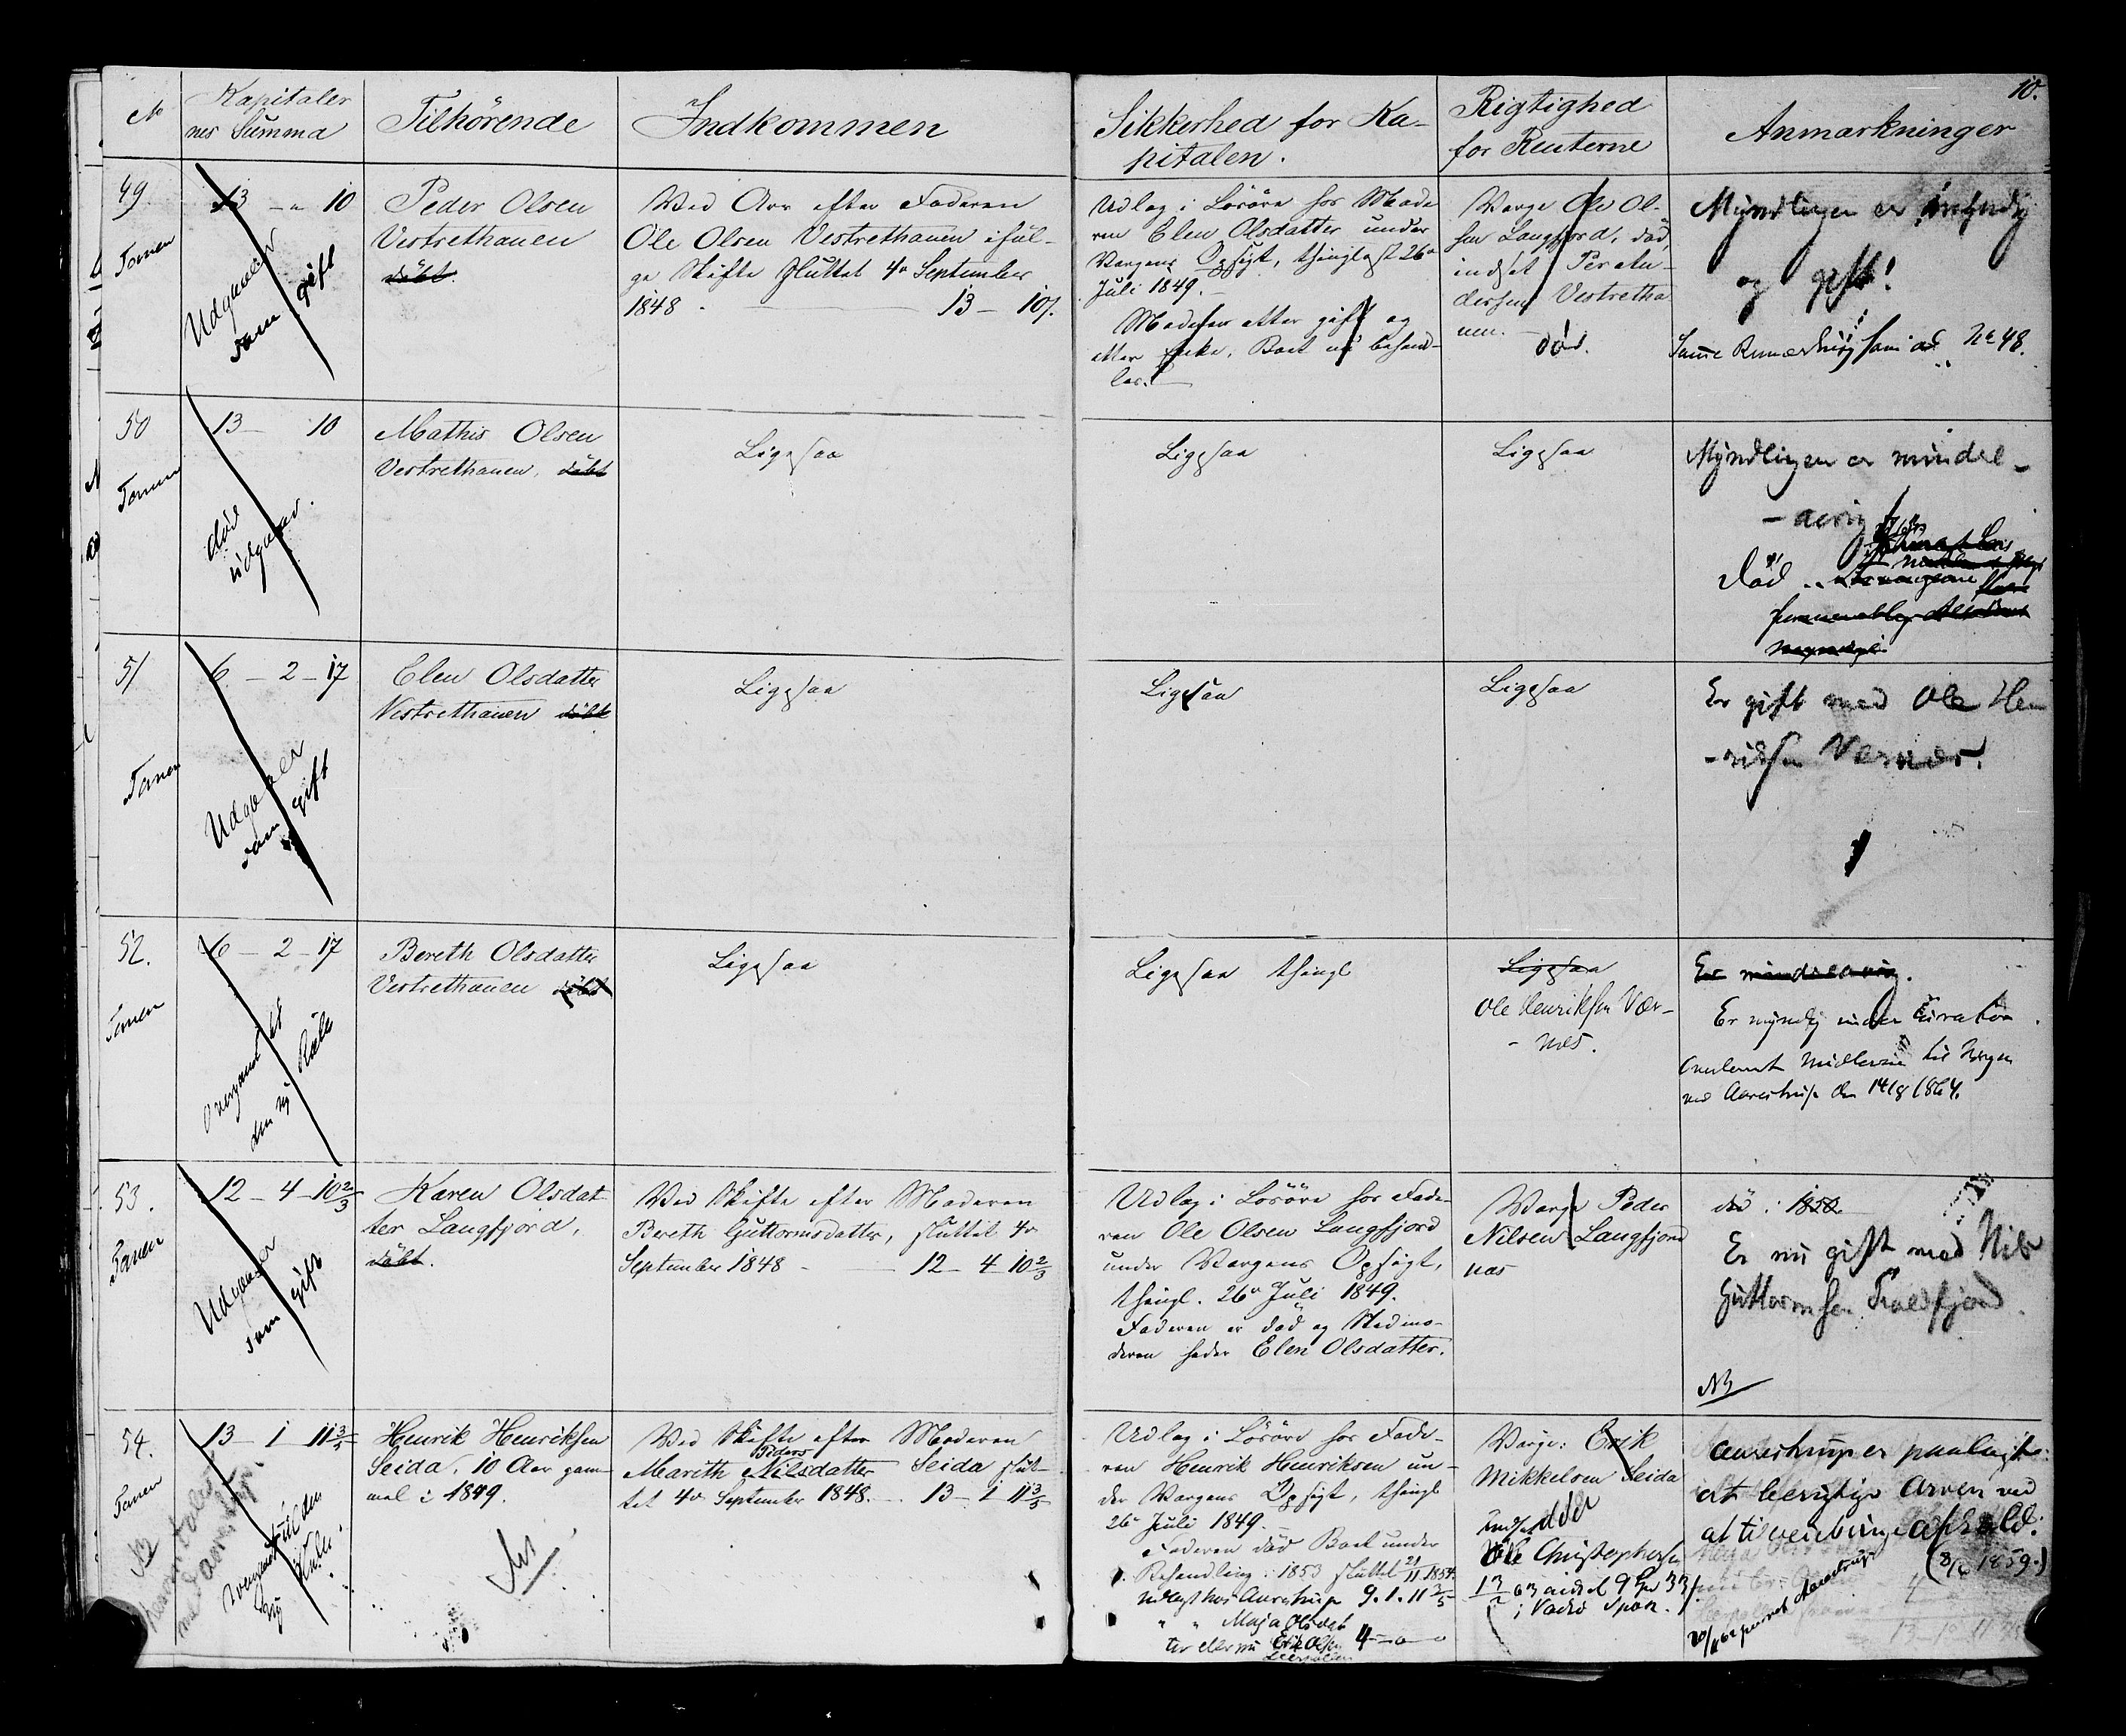 10.
No
Kapitaler
nes Summa
Tilhörende
Indkommen
Sikkerhed for Ka-
pitalen.
Rigtighed
for Renterne
Anmærkninger
49.
Tanen
13 - " 10
Udgaaer
som gift
Peder Olsen
Vestrethanen
döbt.
Ved Arv efter Faderen
Ole Olsen Vestrethanen iföl-
ge Skifte sluttet 4de September
1848 - 13 - 10/.
Udlag i Lösöre hos Mode
ren Elen Olsdatter under
Værgens Opsigt, thinglæst 26de
Juli 1849.
Moderen atter gift og
atter Enke, Boet
Værge Ole Ol-
sen Langfjord, död,
indsat Per An-
dersen Vestretha
nen.
död.
Myndlingen er myndig
og gift!
Samme Anmærkning som ad No 48.
50
Tanen
13 - 10
död
udgaaer.
Mathis Olsen
Vestrethanen, döbt
Ligesaa
Ligesaa
Ligesaa
Myndlingen er mindre-
-aarig
Död
51
Tanen
6 - 2 - 17
Udgaaer
som gift
Elen Olsdatter
Vestrethanen döbt
Ligesaa
Ligesaa
Ligesaa
Er gift med Ole Hen
-riksen Vernæs.
52.
Tanen
6 - 2 - 17
den ny Rulle
Bereth Olsdatter
Vestrethanen döbt
Ligesaa
Ligesaa thingl
Ligesaa
Ole Henriksen Vær-
- næs.
Er mindreaarig.
Er myndig under Curator.
Midlerne til
ved Aarestrup den 14/8 1864.
53.
Tanen
12 - 4 - 10 2/3
Udgaaer
som gift
Karen Olsdat
ter Langfjord,
döbt.
Ved Skifte efter Moderen
Bereth Guttormsdatter, sluttet 4de
September 1848 - 12 - 4 - 10 2/3
Udlag i Lösöre hos Fade-
ren Ole Olsen Langfjord
under Værgens Opsigt,
thingl. 26de Juli 1849.
Faderen er död og Stedmo-
deren heder Elen Olsdatter.
Værge Peder
Nilsen Langfjord
næs
död i 1850.
Er nu gift med Nils
Guttormsen Troldfjord.
NB
54.
Tanen
13 - 1 - 11 3/5
NB
den
ny Rulle.
Henrik Henriksen
Seida, 10 Aar gam-
mel i 1849.
Ved Skifte efter Moderen
Peders
Marith Nilsdatter Seida slut-
tet 4de September 1848. - 13 - 1 11 3/5
Udlag i Lösöre hos Fade-
ren Henrik Henriksen un-
der Værgens Opsigt, thingl
26de Juli 1849.
Faderen död Boet under
Behandling i 1853 sluttet 21/11 1854.
Udlagt hos Aarestrup 9. 1. 11 3/5
" " Maja Olsdat
ter eller nu Erik Olsen 4 - 0 - 0
Værge: Erik
Mikkelsen Seida
död
Ole Christophersen
i Vadsö Spar.
Aarestrup er paalagt
at berigtige Arven ved
at tilveiebringe Afkald.
(8/6 1859.)
Aarestrup